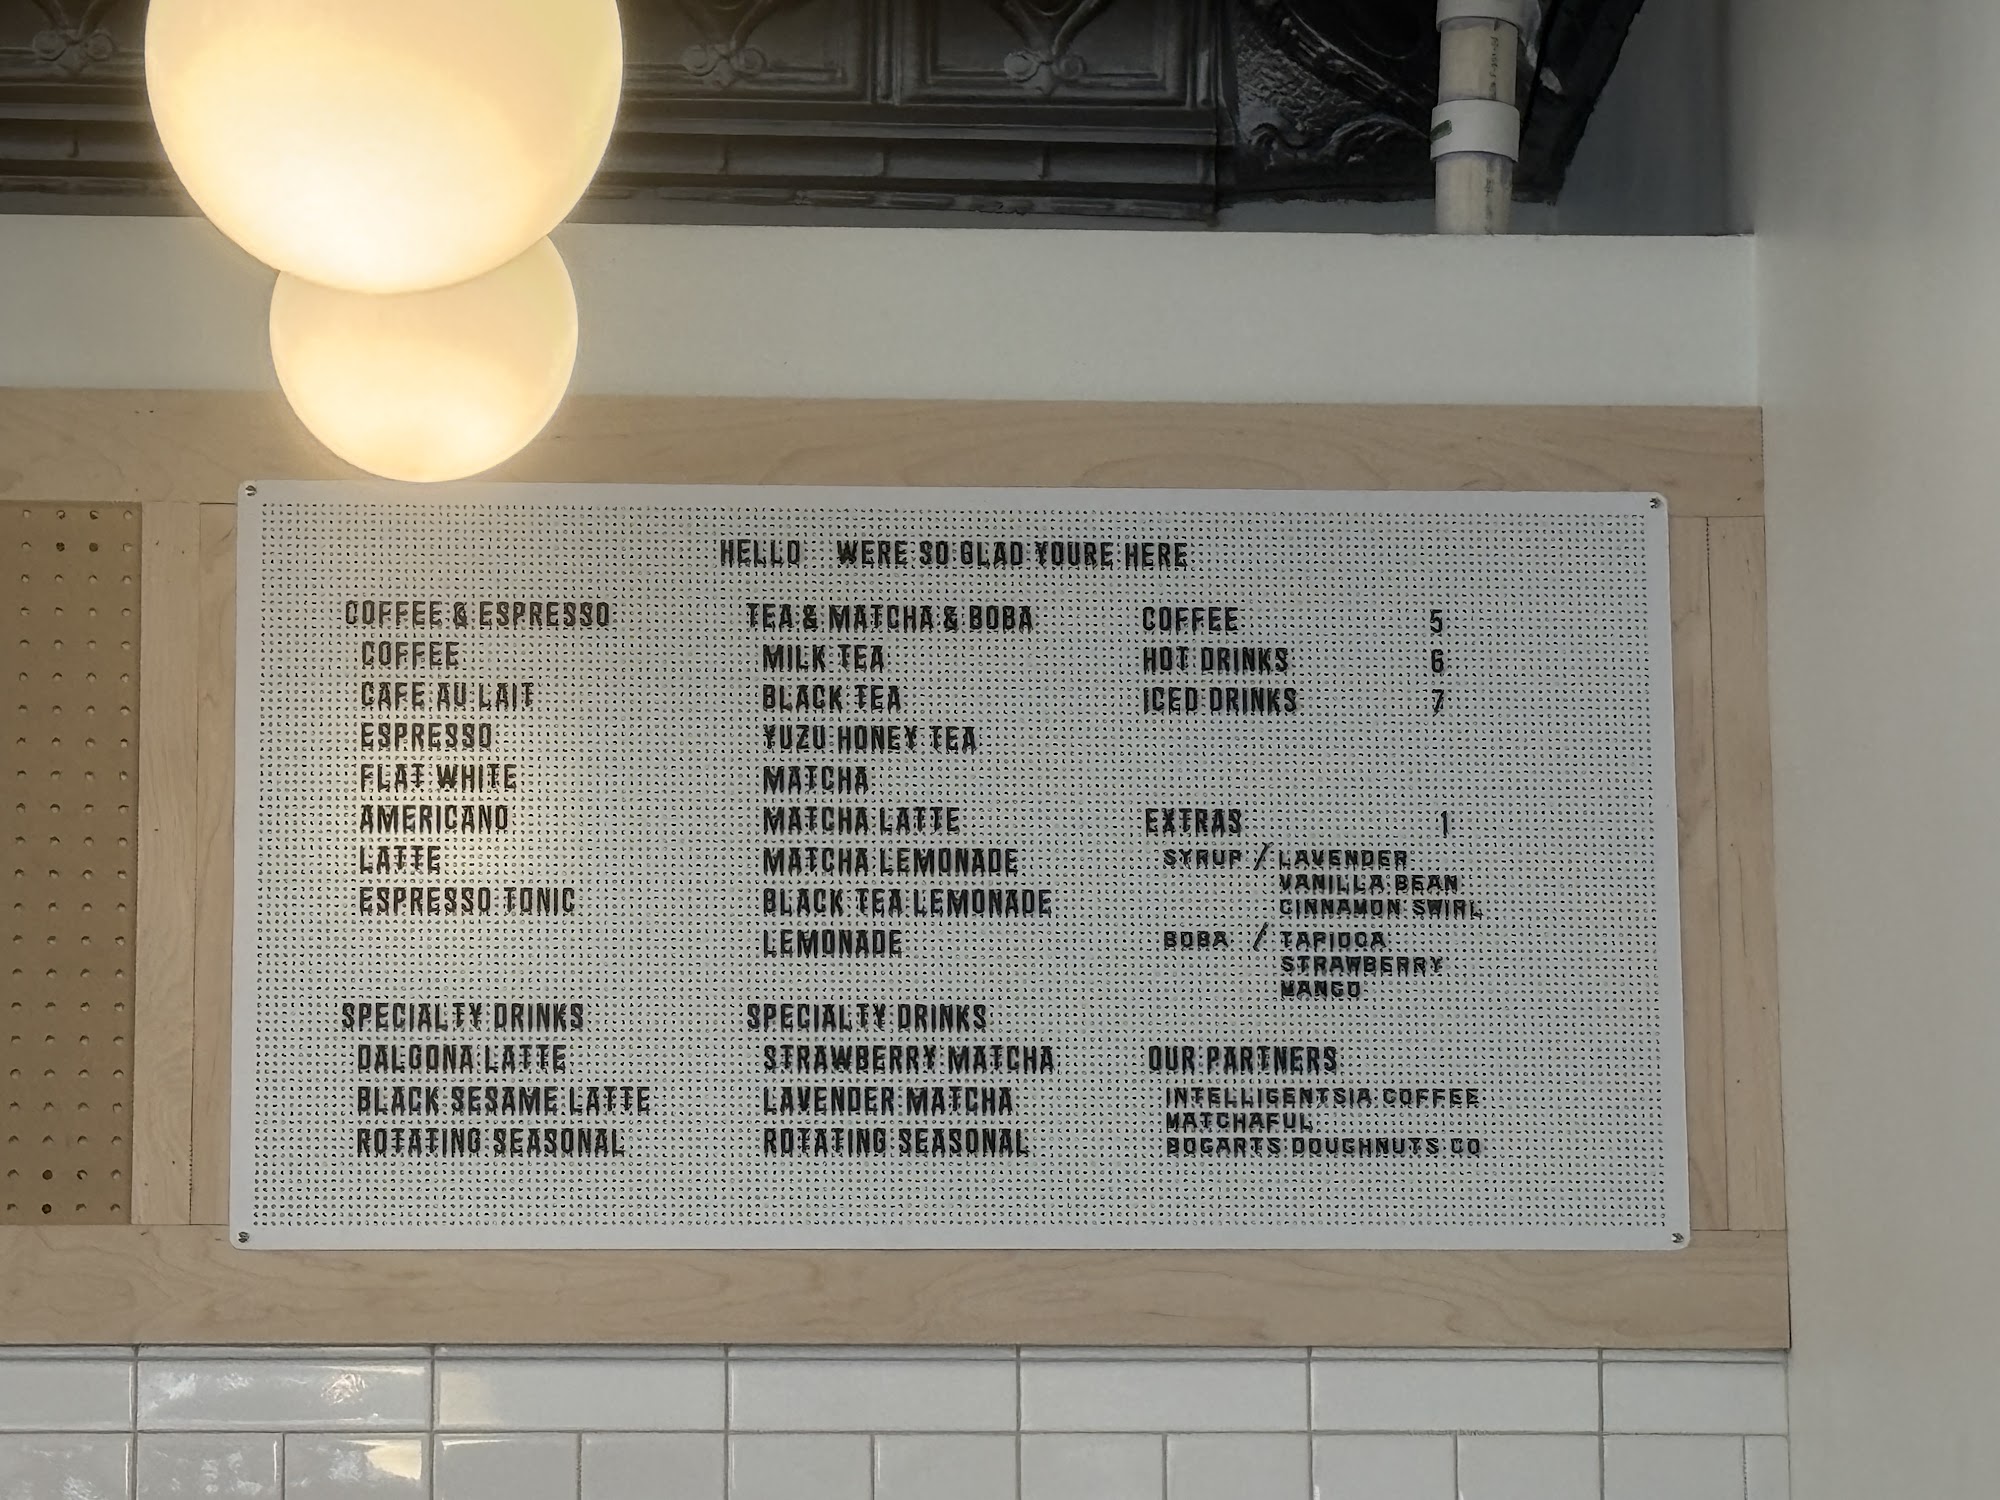 HELLO WERE SO GLAD YOURE HERE
COFFEE & ESPRESSO
COFFEE
CAFE AU LAIT
ESPRESSO
FLAT WHITE
AMERICANO
LATTE
ESPRESSO TONIC
SPECIALTY DRINKS
DALGONA LATTE
BLACK SESAME LATTE
ROTATING SEASONAL
TEA & MATCHA & BOBA
MILK TEA
BLACK TEA
YUZU HONEY TEA
MATCHA
MATCHA LATTE
MATCHA LEMONADE
BLACK TEA LEMONADE
LEMONADE
SPECIALTY DRINKS
STRAWBERRY MATCHA
LAVENDER MATCHA
ROTATING SEASONAL
COFFEE 5
HOT DRINKS 6
ICED DRINKS 7
EXTRAS 1
SYRUP / LAVENDER
VANILLA BEAN
CINNAMON SWIRL
BOBA / TAPIOCA
STRAWBERRY
MANGO
OUR PARTNERS
INTELLIGENTSIA COFFEE
MATCHAFUL
BOGARTS DOUGHNUTS CO